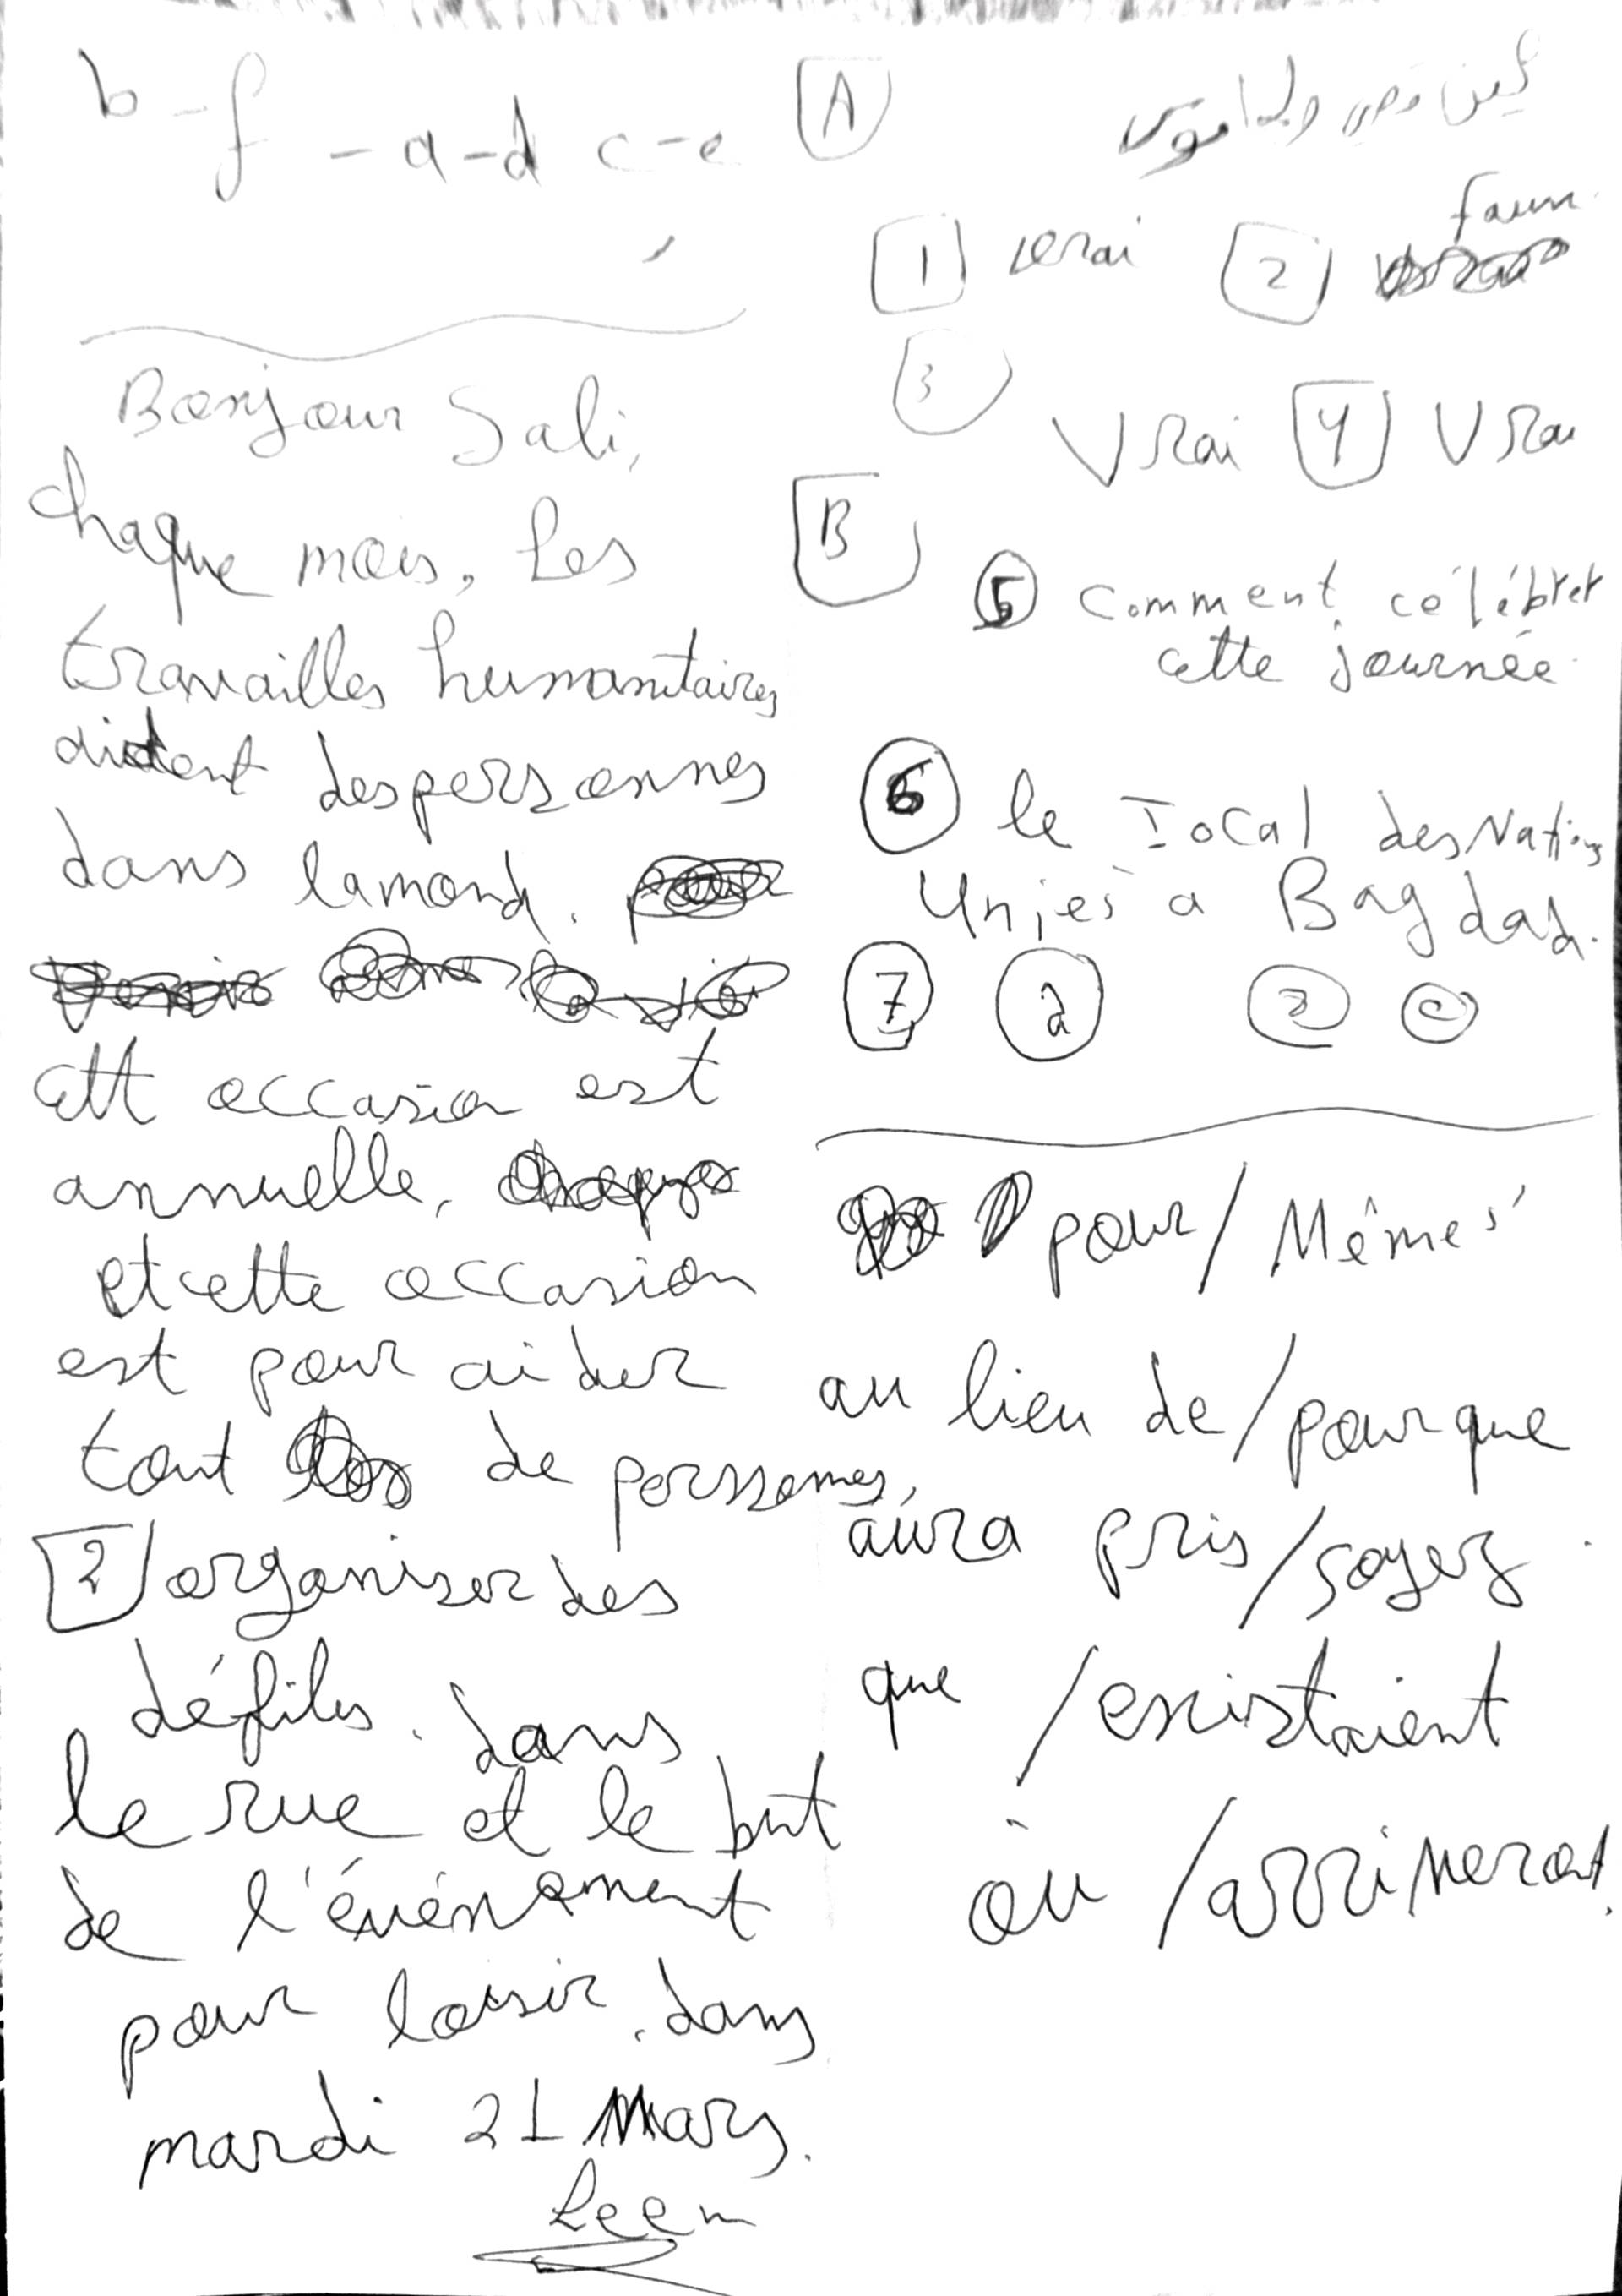 b - f - a - d c - e
A
1 vrai 2 faux
3 Vrai 4 Vrai
B
5 comment célébrer
cette journée.
6 le local des Nations
Unies à Bagdad.
7 a 3 c
pour / Mêmes
au lieu de / pour que
aura pris / soyez
que / existaient
où / arriveront.
Bonjour Sali,
chaque mois, Les
travailles humanitaires
aident des personnes
dans la mond.
cett occasion est
annuelle,
et cette occasion
est pour aider
tout de perssomes,
2 organiser des
défiles. dans
le rue et le but
de l'événement
pour loisir. dans
mardi 21 Mars.
Leen